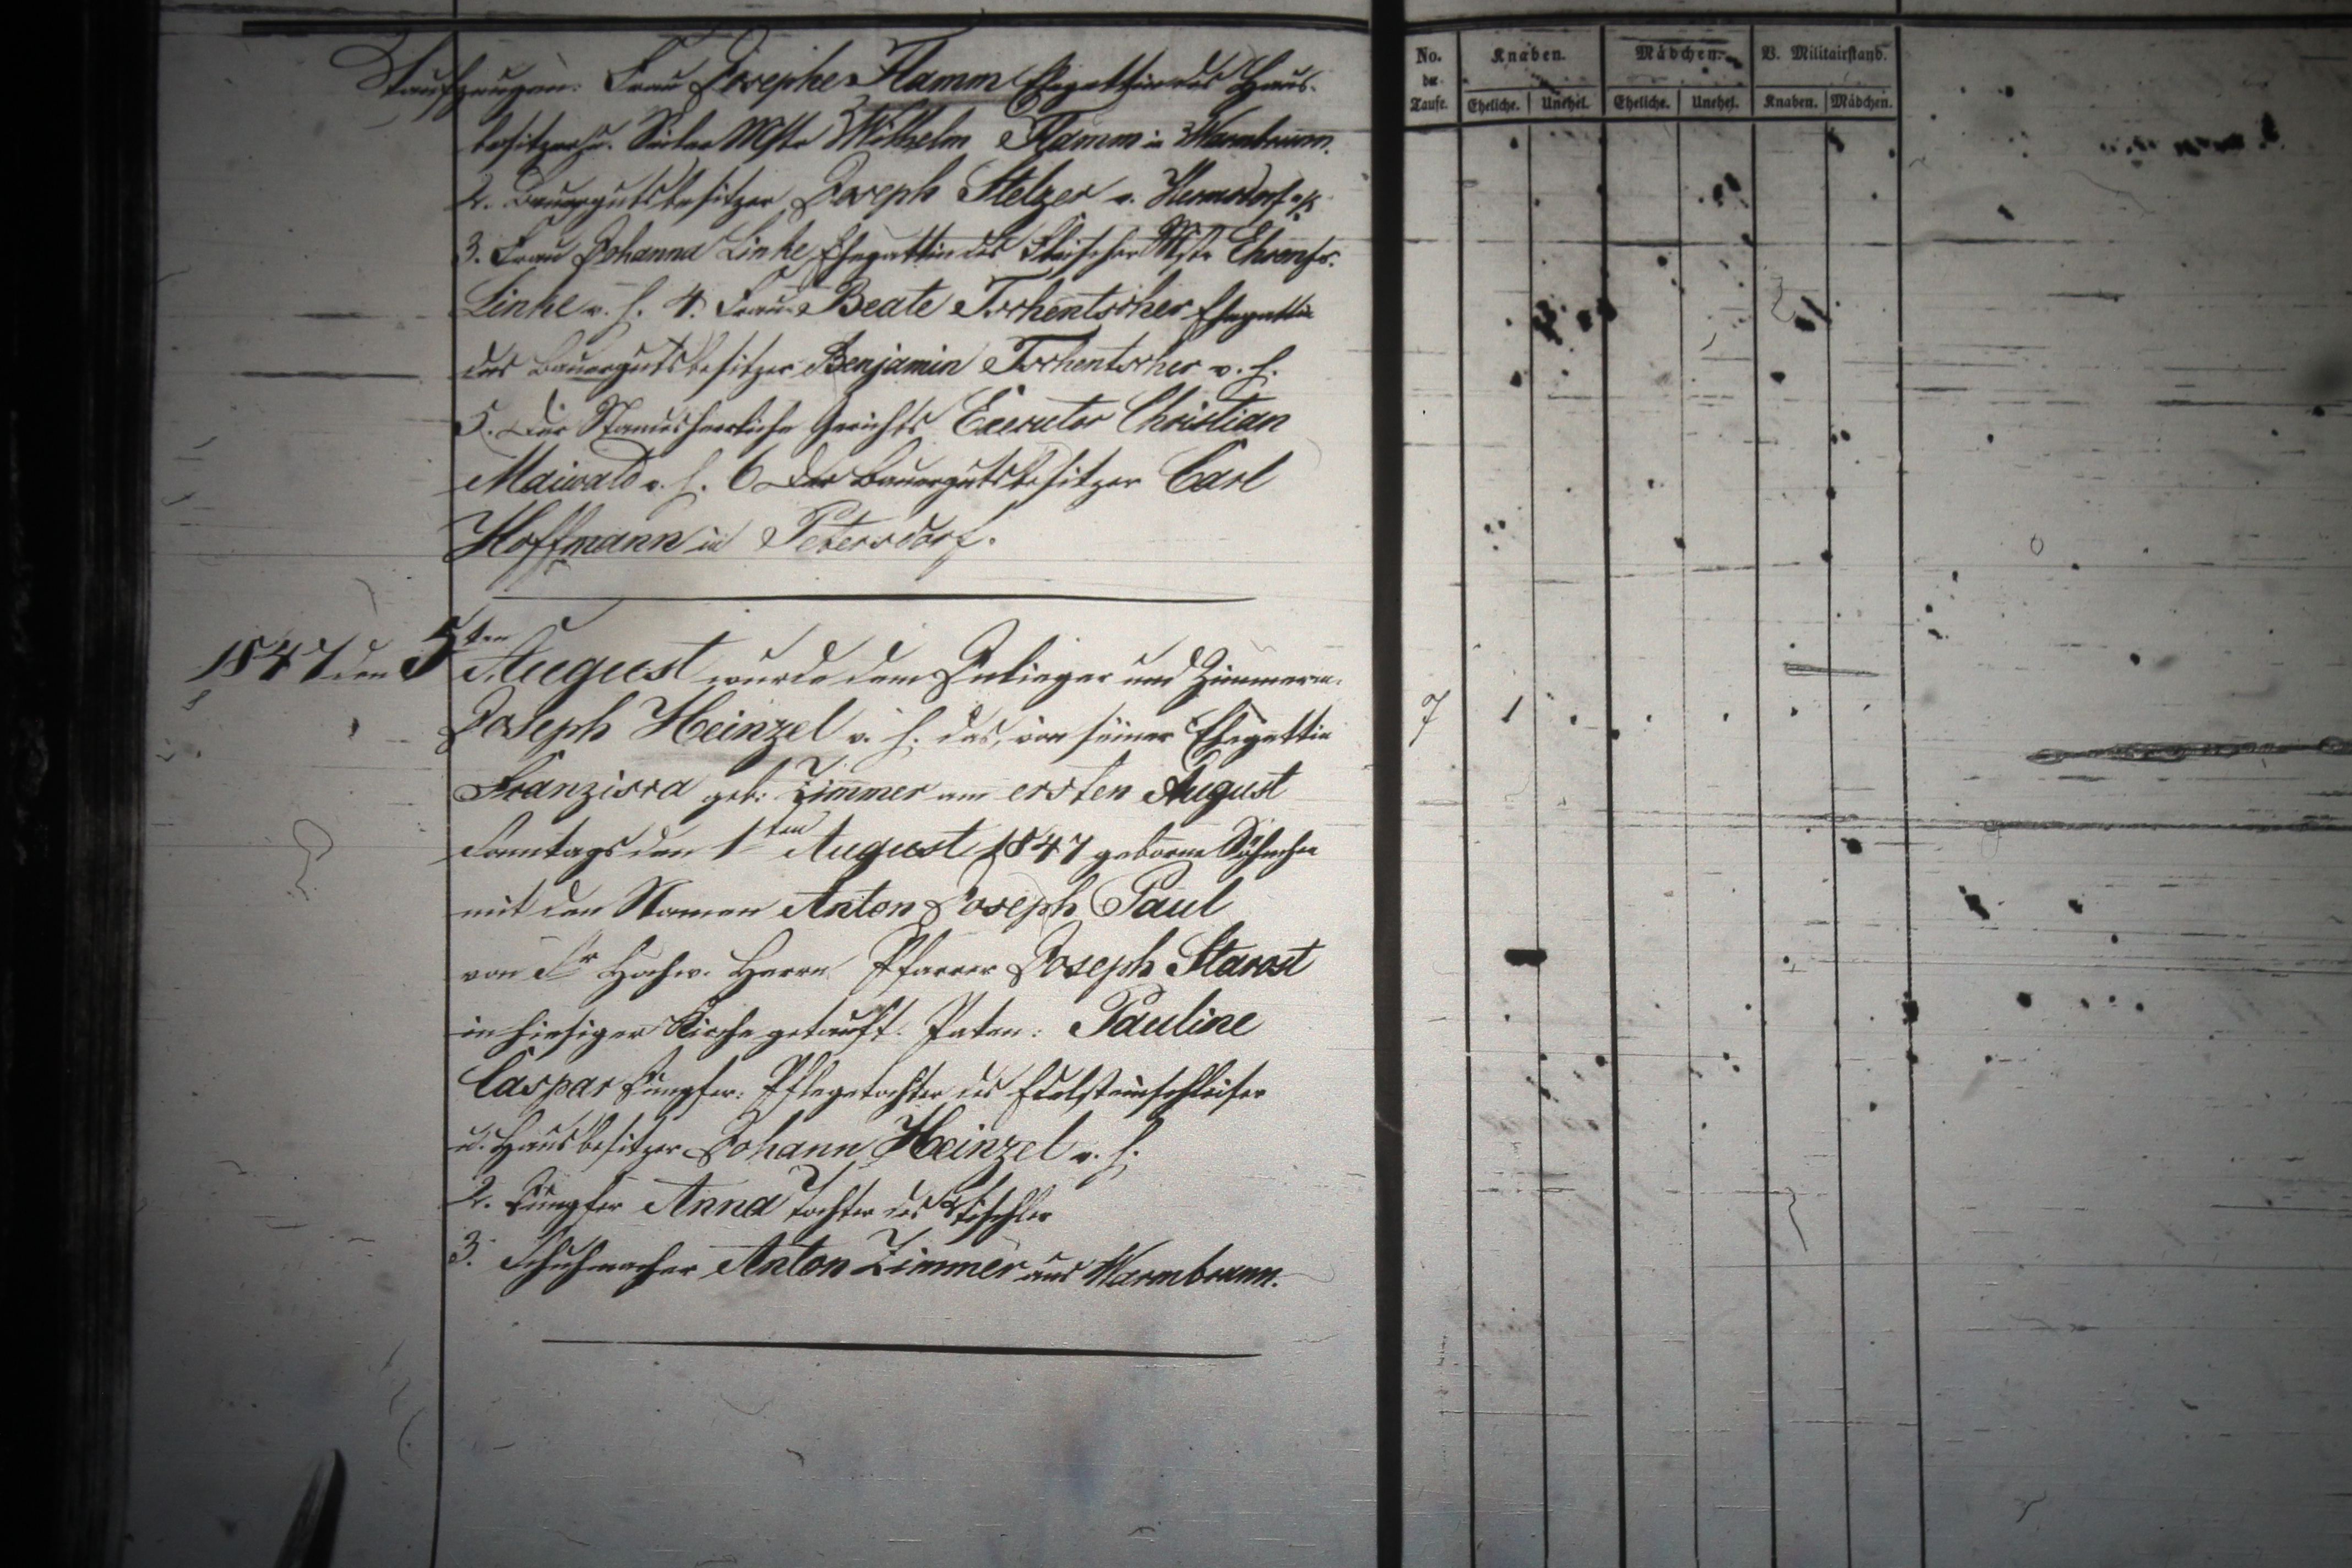 Taufzeugen: Frau Josephe Flamm Ehegattin des Haus-
besitzers u. Mstr Wilhelm Flamm in Warmbrunn.
2. Bauergutsbesitzer Joseph Stelzer v. Hermsdorf u/K
3. Frau Johanna Linke, Ehegattin des Fleischer Mstr Ehrenfr.
Linke v. h. 4. Frau Beate Tschentscher Ehegattin
des Bauergutsbesitzer Benjamin Tschentscher v. h.
5. Der Standesherrliche Gerichts Executor Christian
Maiwald v. h. 6 Der Bauergutsbesitzer Carl
Hoffmann in Petersdorf.
1847 den 5ten August wurde dem Inlieger und Zimmerm.
Joseph Heinzel v. h. das, von seiner Ehegattin
Franzisca geb: Zimmer am ersten August
Sonntags den 1ten August 1847 geborne Söhnchen
mit den Namen Anton Joseph Paul
von Sr Hochw. Herrn Pfarrer Joseph Starost
in hiesiger Kirche getauft. Paten: Pauline
Caspar Jungfer: Pflegetochter des Edelsteinschleifer
u. Hausbesitzer Johann Heinzel v. h.
2. Jungfer Anna Tochter des Tischler
3. Schuhmacher Anton Zimmer aus Warmbrunn.
No. der Taufe. Knaben. Mädchen. B. Militairstand.
Eheliche. Unehel. Eheliche. Unehel. Knaben. Mädchen.
7 1